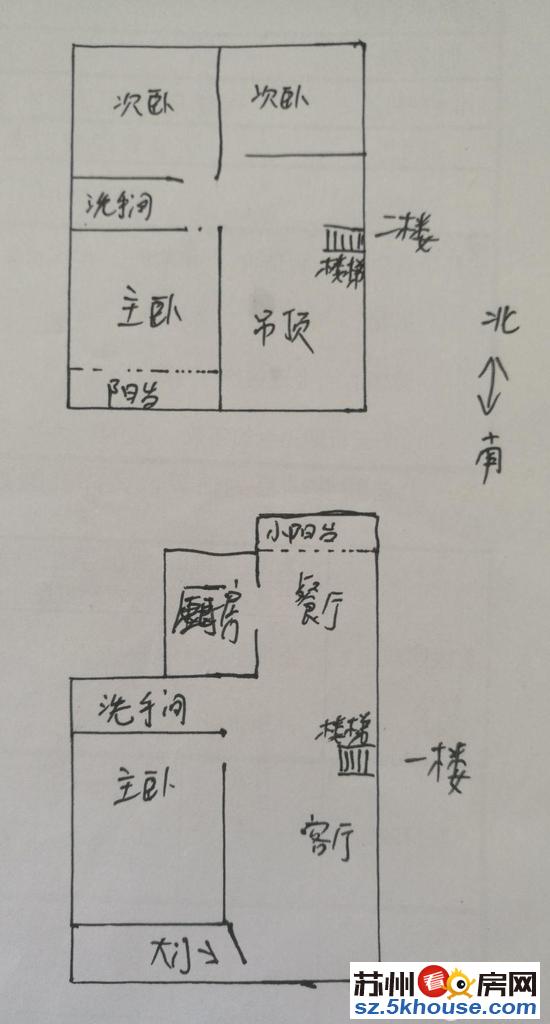 次卧 次卧
洗手间
二楼
楼梯
主卧
吊顶
阳台
北
南
小阳台
厨房
餐厅
洗手间
楼梯
一楼
主卧
客厅
大门
苏州看房网
sz.5khouse.com